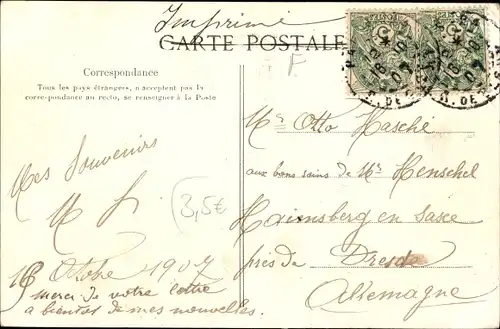 Imprimé
CARTE POSTALE
F
Correspondance
Tous les pays étrangers, n'acceptent pas la
correspondance au recto, se renseigner à la Poste
Mes Souvenirs
M
3,5€
18 Octobre 1907
merci de votre lettre
a bientot de mes nouvelles.
Mr Otto Hasche
aux bons soins de Mr Henschel
Hainsberg en Saxe
près de Dresde
Allemagne